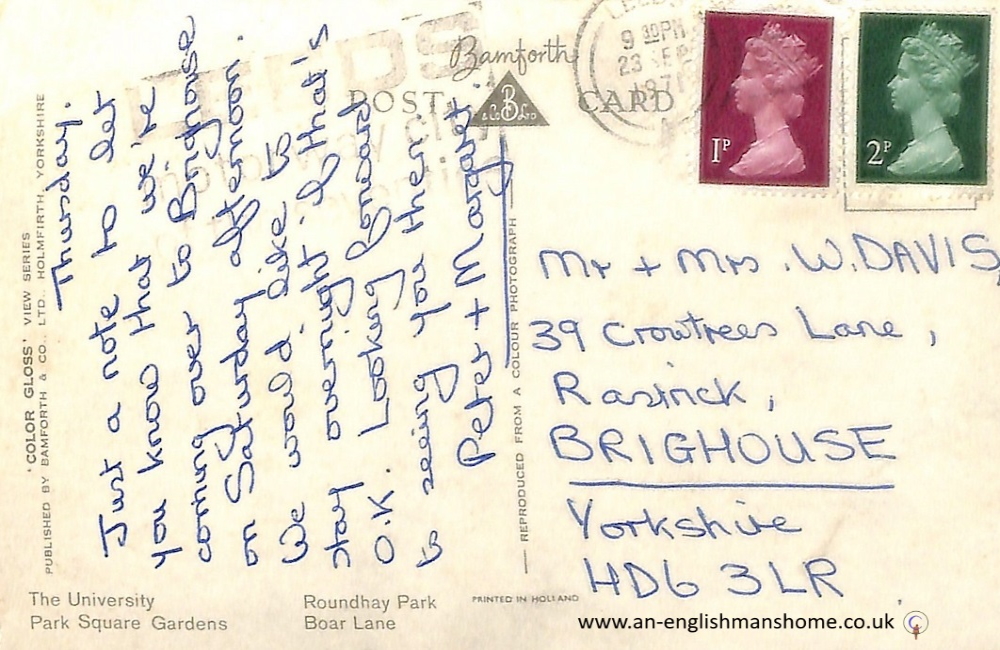 'COLOR GLOSS' VIEW SERIES
PUBLISHED BY BAMFORTH & CO., LTD., HOLMFIRTH, YORKSHIRE
Thursday.
Just a note to let
you know that we're
coming over to Brighouse
on Saturday afternoon.
We would like to
stay overnight if that's
O.K. Looking forward
to seeing you then.
Peter + Margaret.
LEEDS
Bamforth
POST CARD
B
& Co Ltd
LEEDS
9 30PM
23 SEP
1971
1P
2P
REPRODUCED FROM A COLOUR PHOTOGRAPH
Mr + Mrs .W.DAVIS,
39 Crowtrees Lane,
Rastrick,
BRIGHOUSE
Yorkshire
HD6 3LR.
The University
Park Square Gardens
Roundhay Park
Boar Lane
PRINTED IN HOLLAND
www.an-englishmanshome.co.uk